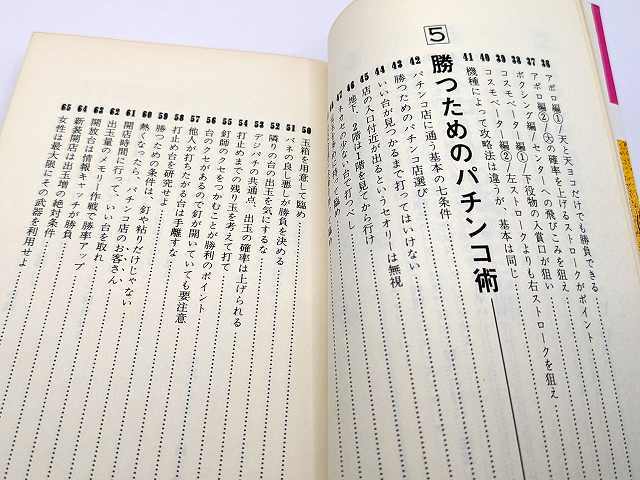 36 アポロ編①/天と天ヨコだけでも勝負できる
37 アポロ編②/㊅の確率を上げるストロークがポイント
38 ボクシング編/センターへの飛びこみを狙え
39 コスモベーター編①/下役物の入賞口が狙い
40 コスモベーター編②/左ストロークよりも右ストロークを狙え
41 機種によって攻略法は違うが、基本は同じ
5 勝つためのパチンコ術
42 パチンコ店に通う基本の七条件
43 勝つためのパチンコ店選び
44 いい台が見つかるまで打ってはいけない
45 店の入口付近が出るというセオリーは無視
46 地下、2階は1階を見てから行け
47 ネカセの少ない台で打つべし
50 玉箱を用意して臨め
51 バネの良し悪しが勝負を決める
52 隣りの台の出玉を気にするな
53 デジパチの共通点、出玉の確率は上げられる
54 打止めまでの残り玉を考えて打て
55 釘師のクセをつかむことが、勝利のポイント
56 台のクセがあるので釘が開いていても要注意
57 他人が打ちたがる台は手離すな
58 打止め台を研究せよ
59 勝つための条件は、釘や粘りだけじゃない
60 熱くなったら、パチンコ店のお客さん
61 開店時間に行って、いい台を取れ
62 出玉量のメモリー作戦で勝率アップ
63 開放台は情報キャッチが勝負
64 新装開店は出玉増の絶対条件
65 女性は最大限にその武器を利用せよ